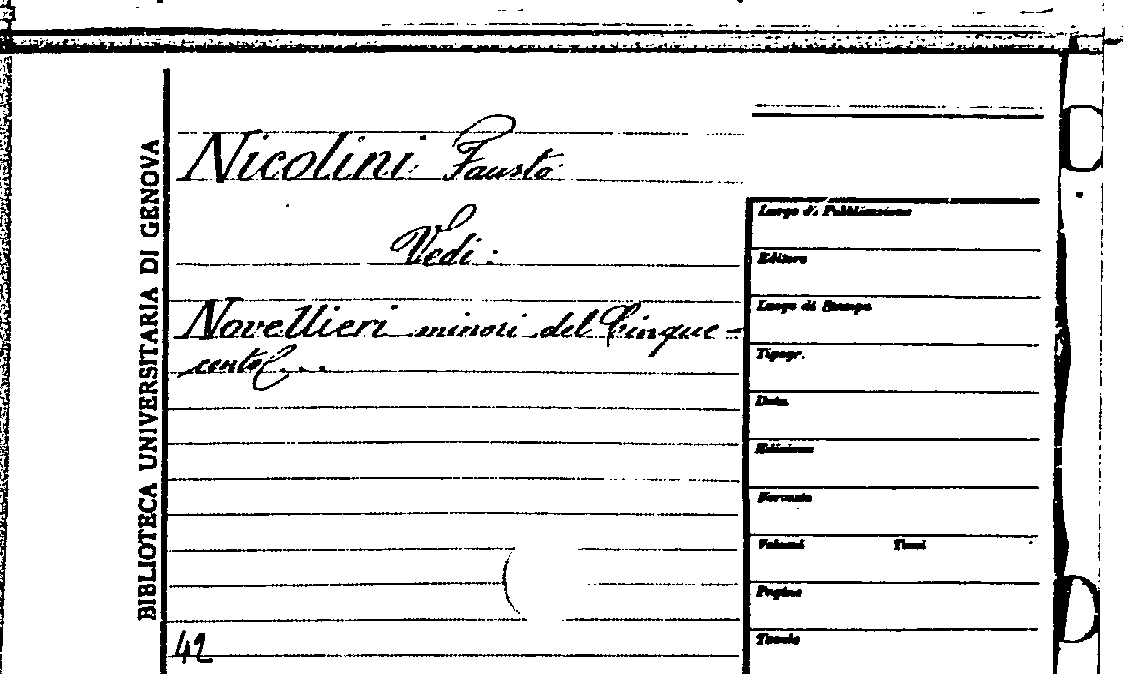 BIBLIOTECA UNIVERSITARIA DI GENOVA
Nicolini Fausto
Vedi:
Novellieri minori del Cinque-
cento...
42
Luogo di Pubblicazione
Editore
Luogo di Stampa
Tipogr.
Data
Edizione
Formato
Volumi Tomi
Pagine
Tavole